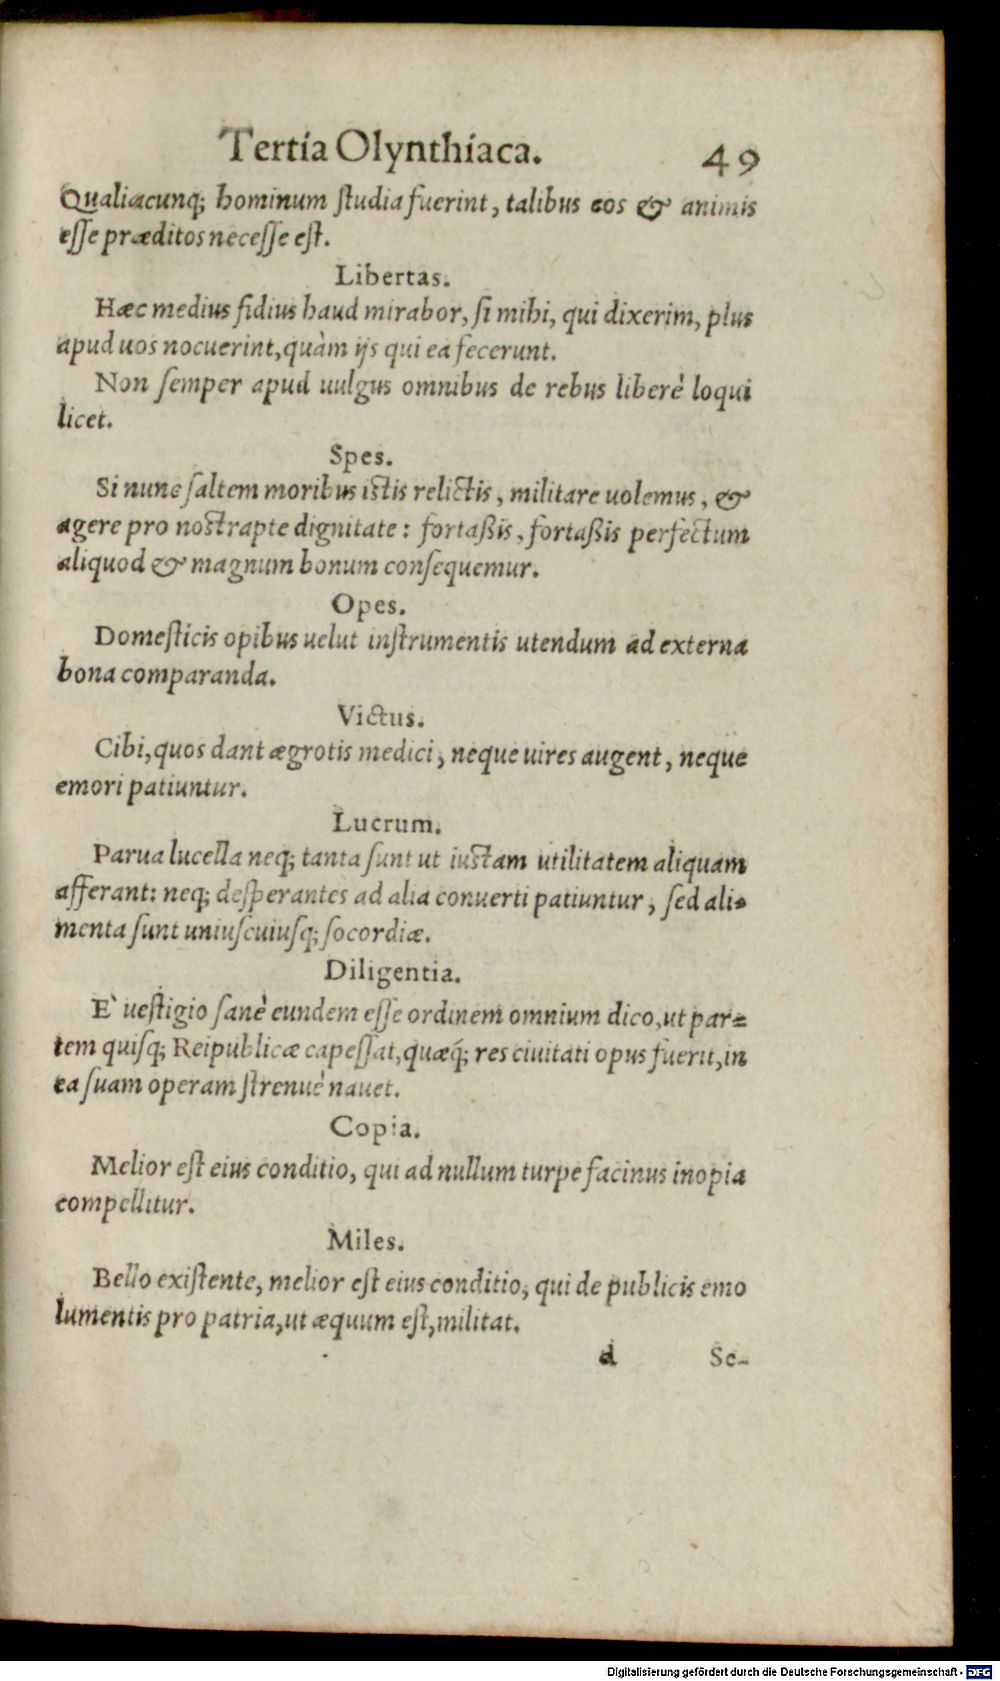 Tertia Olynthiaca. 49
Qualiacunq; hominum studia fuerint, talibus eos & animis
esse præditos necesse est.
Libertas.
Hæc medius fidius haud mirabor, si mihi, qui dixerim, plus
apud uos nocuerint, quàm ijs qui ea fecerunt.
Non semper apud uulgus omnibus de rebus liberè loqui
licet.
Spes.
Si nunc saltem moribus istis relictis, militare uolemus, &
agere pro nostrapte dignitate: fortaßis, fortaßis perfectum
aliquod & magnum bonum consequemur.
Opes.
Domesticis opibus uelut instrumentis utendum ad externa
bona comparanda.
Victus.
Cibi, quos dant ægrotis medici, neque uires augent, neque
emori patiuntur.
Lucrum.
Parua lucella neq; tanta sunt ut iustam utilitatem aliquam
afferant: neq; desperantes ad alia conuerti patiuntur, sed ali-
menta sunt uniuscuiusq; socordiæ.
Diligentia.
E` uestigio sanè eundem esse ordinem omnium dico, ut par=
tem quisq; Reipublicæ capessat, quæq́; res ciuitati opus fuerit, in
ea suam operam strenuè nauet.
Copia.
Melior est eius conditio, qui ad nullum turpe facinus inopia
compellitur.
Miles.
Bello existente, melior est eius conditio, qui de publicis emo
lumentis pro patria, ut æquum est, militat.
d Se-
Digitalisierung gefördert durch die Deutsche Forschungsgemeinschaft - DFG